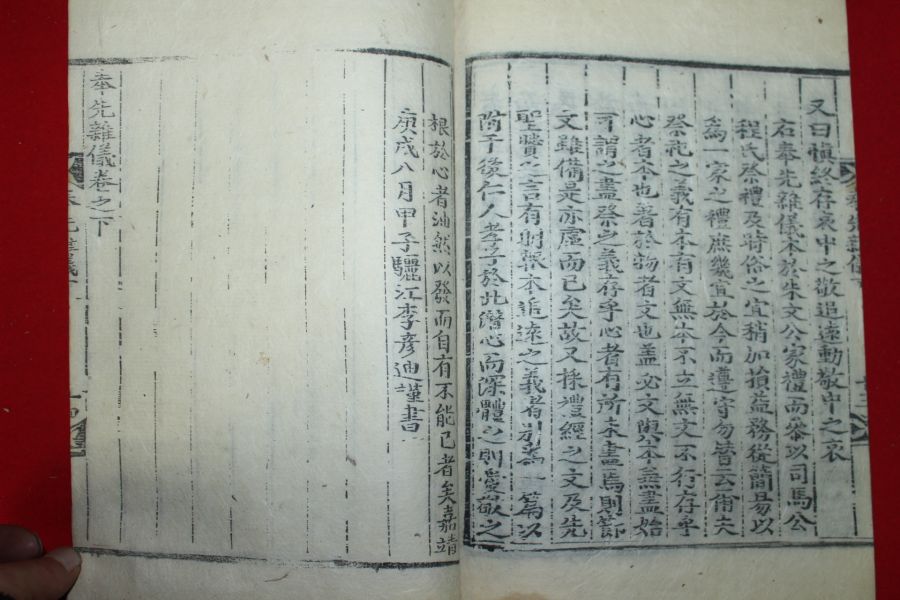 又曰愼終存哀中之敬追遠動敬中之哀
右奉先雜儀本於朱文公家禮而叅以司馬公
程氏祭禮及時俗之宜稍加損益務從簡易以
爲一家之禮庶幾宜於今而遵守勿替云爾夫
祭祀之義有本有文無本不立無文不行存乎
心者本也著於物者文也盖必文與本兼盡始
可謂之盡祭之義存乎心者有所未盡焉則節
文雖備是亦虛而已矣故又採禮經之文及先
聖賢之言有明報本追遠之義者別爲一篇以
附于後仁人孝子於此潛心而深體之則愛敬之
根於心者油然以發而自有不能已者矣嘉靖
庚戌八月甲子驪江李彦迪謹書
奉先雜儀卷之下